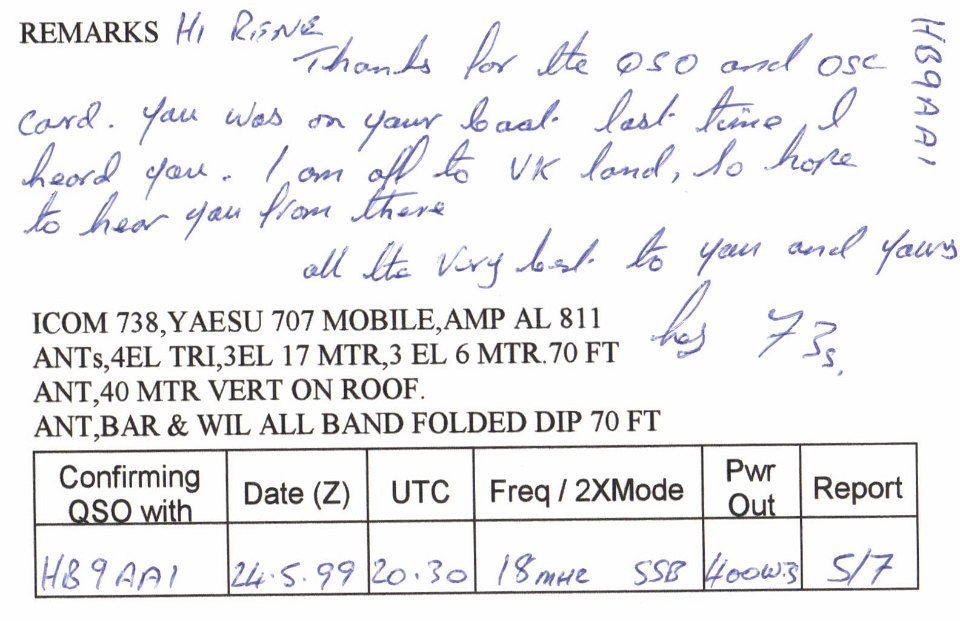 REMARKS Hi RENE
Thanks for the QSO and QSL
card. you was on your boat last time I
heard you. I am off to VK land, so hope
to hear you from there
all the very best to you and yours
73s.
HB9AAI
ICOM 738,YAESU 707 MOBILE,AMP AL 811
ANTs,4EL TRI,3EL 17 MTR,3 EL 6 MTR.70 FT
ANT,40 MTR VERT ON ROOF.
ANT,BAR & WIL ALL BAND FOLDED DIP 70 FT
Confirming QSO with Date (Z) UTC Freq / 2XMode Pwr Out Report
HB9AAI 24.5.99 20.30 18MHZ SSB 400W.S 5/7